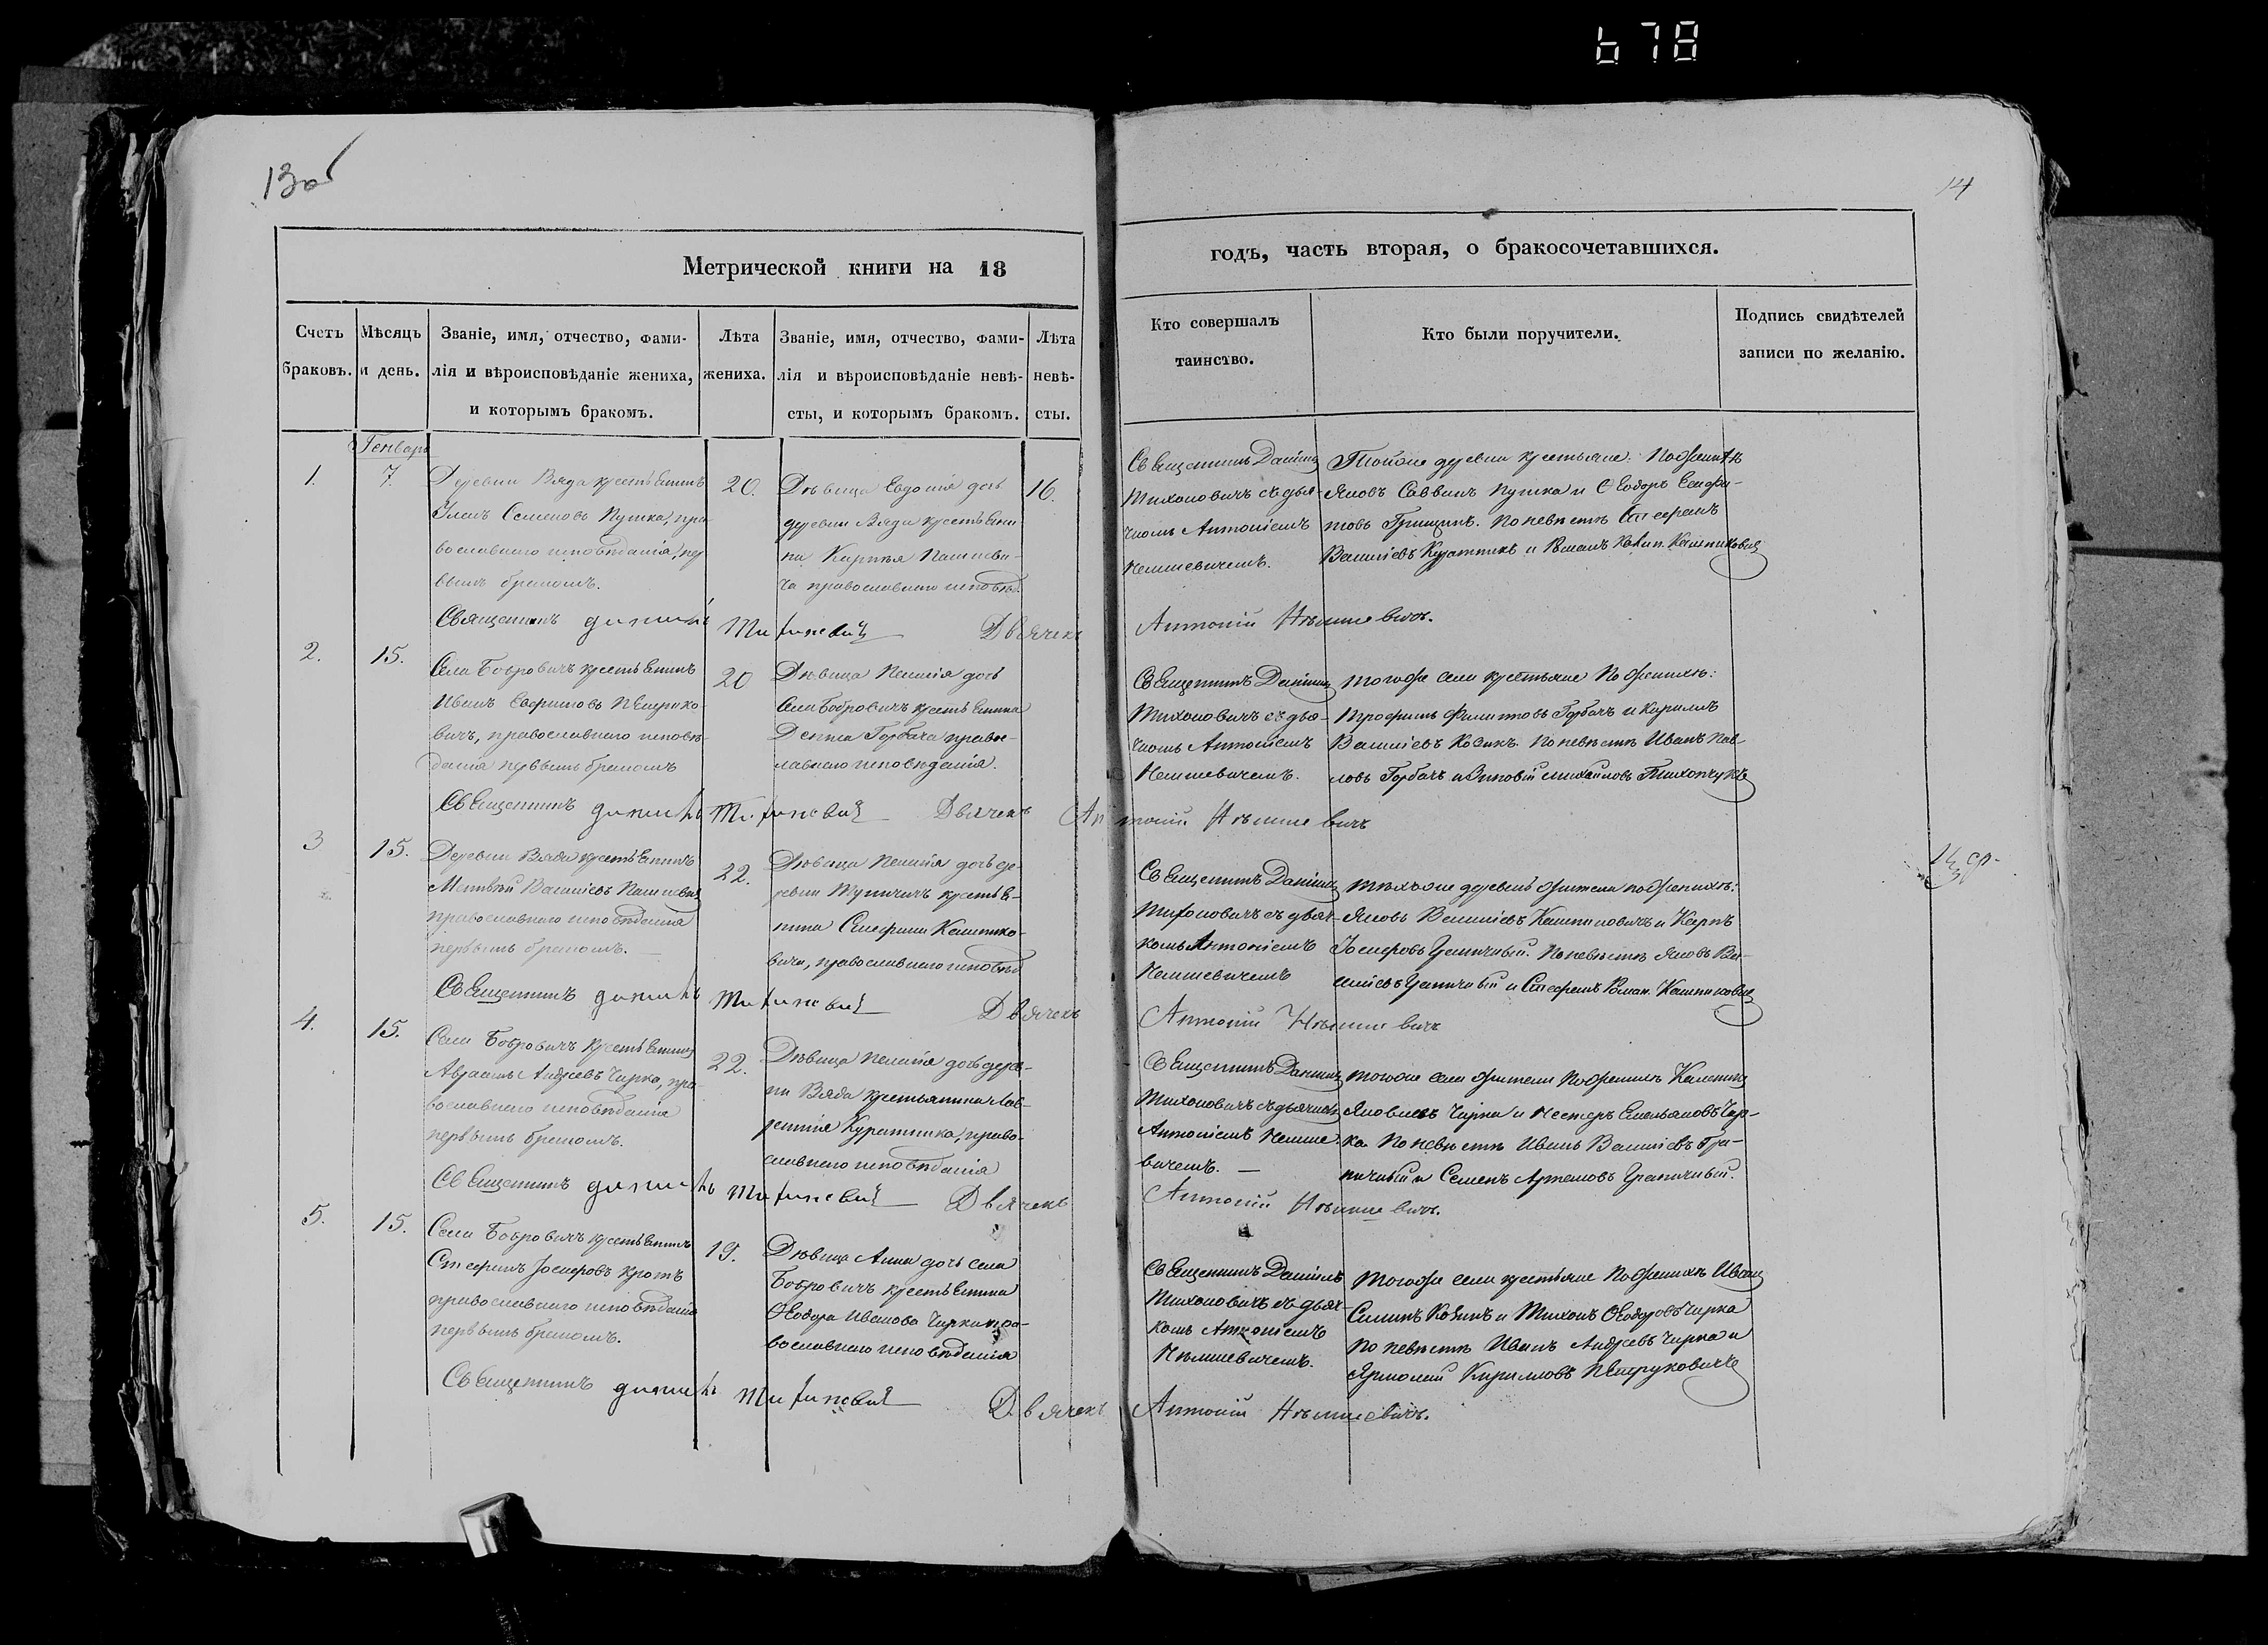 678
13об
14
Метрической книги на 18
годъ, часть вторая, о бракосочетавшихся.
Счетъ браковъ.
Мѣсяцъ и день.
Званіе, имя, отчество, фами-
лія и вѣроисповѣданіе жениха,
и которымъ бракомъ.
Лѣта
жениха.
Званіе, имя, отчество, фами-
лія и вѣроисповѣданіе невѣ-
сты, и которымъ бракомъ.
Лѣта
невѣ-
сты.
Кто совершалъ
таинство.
Кто были поручители.
Подпись свидѣтелей
записи по желанію.
Генварь
1.
7.
Деревни Вяда крестьянинъ
Семеновъ Пушка, пра-
вославнаго исповѣданія, пер
вымъ бракомъ.
20.
Дѣвица Евдокія дочь
деревни Вяда крестьяни
на Карпа
ча православнаго исповѣд.
16.
Священникъ Даніилъ
Тихоновичъ съ дья-
чкомъ Антоніемъ
Немшевичемъ.
Тойже деревни крестьяне: По женихѣ
Яковъ Саввинъ Пушка и Ѳеодоръ
Грищикъ. По невѣстѣ Стефанъ
Василіевъ Куратникъ и Романъ
Священникъ Даніилъ Тихоновичъ Дьячекъ Антоній Нѣмшевичъ.
2.
15.
Села Бобровичъ крестьянинъ
Иванъ Евфимовъ Петруко-
вичъ, православнаго исповѣ-
данія первымъ бракомъ
20
Дѣвица Пелагія дочь
Села Бобровичъ крестьянина
Горбача правос-
лавнаго исповѣданія.
Священникъ Даніилъ
Тихоновичъ съ дья-
чкомъ Антоніемъ
Немшевичемъ.
Тогоже села крестьяне По женихѣ:
Трофимъ Филиповъ Горбачъ и Кирилъ
Василіевъ Козикъ. По невѣстѣ Иванъ Пав-
ловъ Горбачъ и Зиновій Михайловъ Тихончукъ
Священникъ Даніилъ Тихоновичъ Дьячекъ Антоній Нѣмшевичъ
3
15.
Деревни Вяда крестьянинъ
Матвѣй Василіевъ
православнаго исповѣданія
первымъ бракомъ.
22.
Дѣвица Пелагія дочь де-
ревни Тупичичъ крестья-
нина Стефана Кашпко-
вича, православнаго исповѣд
Священникъ Даніилъ
Тихоновичъ съ дьяч-
комъ Антоніемъ
Немшевичемъ
Тѣхъже деревень жители по женихѣ:
Яковъ Василіевъ и Карпъ
Іосифовъ Граничный. По невѣстѣ Яковъ Ва-
силіевъ Граничный и Стефанъ Роман.
Священникъ Даніилъ Тихоновичъ Дьячекъ Антоній Нѣмшевичъ
4.
15.
Села Бобровичъ крестьянинъ
Авраамъ Андреевъ Чирка, пра-
вославнаго исповѣданія
первымъ бракомъ.
22.
Дѣвица Пелагія дочь дерев-
ни Вяда крестьянина Лав-
рентія Куратника, право-
славнаго исповѣданія
Священникъ Даніилъ
Тихоновичъ съ дьячкомъ
Антоніемъ Немше-
вичемъ. —
Тогоже села жители По женихѣ
Яковлевъ Чирка и Нестеръ Емельяновъ Чир-
ка. По невѣстѣ Иванъ Василіевъ Гра-
ничный и Семенъ Артемовъ Граничный.
Священникъ Даніилъ Тихоновичъ Дьячекъ Антоній Нѣмшевичъ.
5.
15.
Села Бобровичъ крестьянинъ
Стефанъ Іосифовъ Кротъ
православнаго исповѣданія
первымъ бракомъ.
19.
Дѣвица Анна дочь села
Бобровичъ крестьянина
Ѳеодора Иванова Чирки пра-
вославнаго исповѣданія
Священникъ Даніилъ
Тихоновичъ съ дьяч-
комъ Антоніемъ
Нѣмшевичемъ.
Тогоже села крестьяне По женихѣ Иванъ
Козикъ и Тихонъ Ѳеодоровъ Чирка
По невѣстѣ Иванъ Андреевъ Чирка и
Ярмолай Кирилловъ Петруковичъ
Священникъ Даніилъ Тихоновичъ Дьячекъ Антоній Нѣмшевичъ.